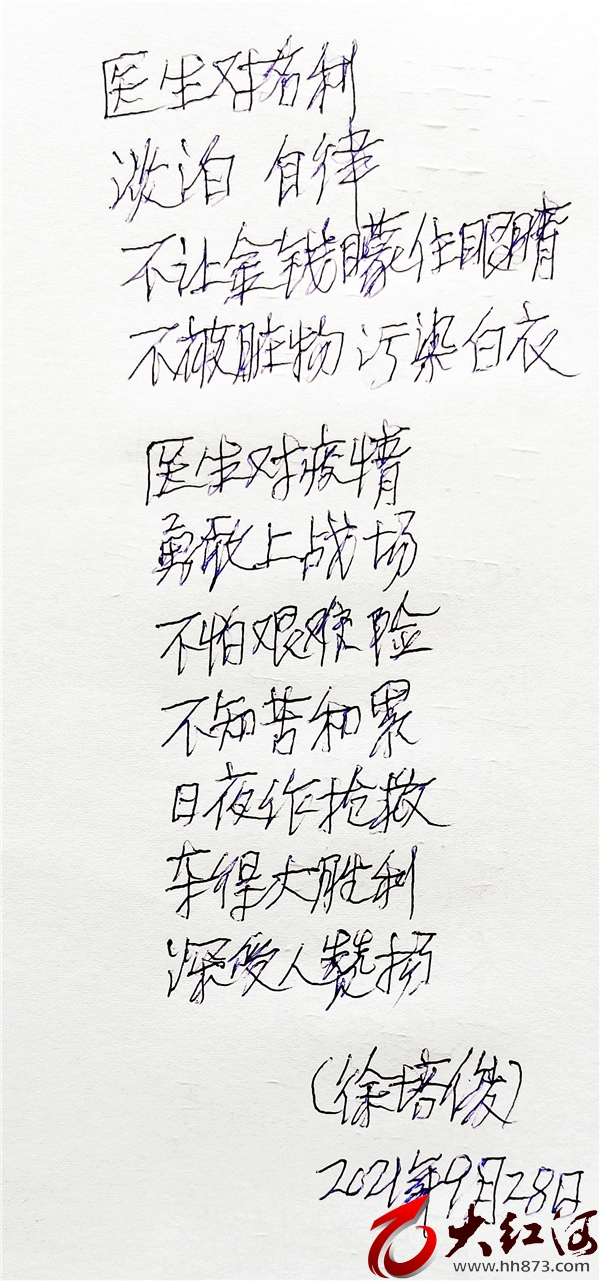 医生对名利
淡泊 自律
不让金钱矇住眼睛
不被脏物污染白衣
医生对疫情
勇敢上战场
不怕艰难险
不知苦和累
日夜作抢救
夺得大胜利
深受人赞扬
(徐培俊)
2021年9月28日
大红河
www.hh873.com